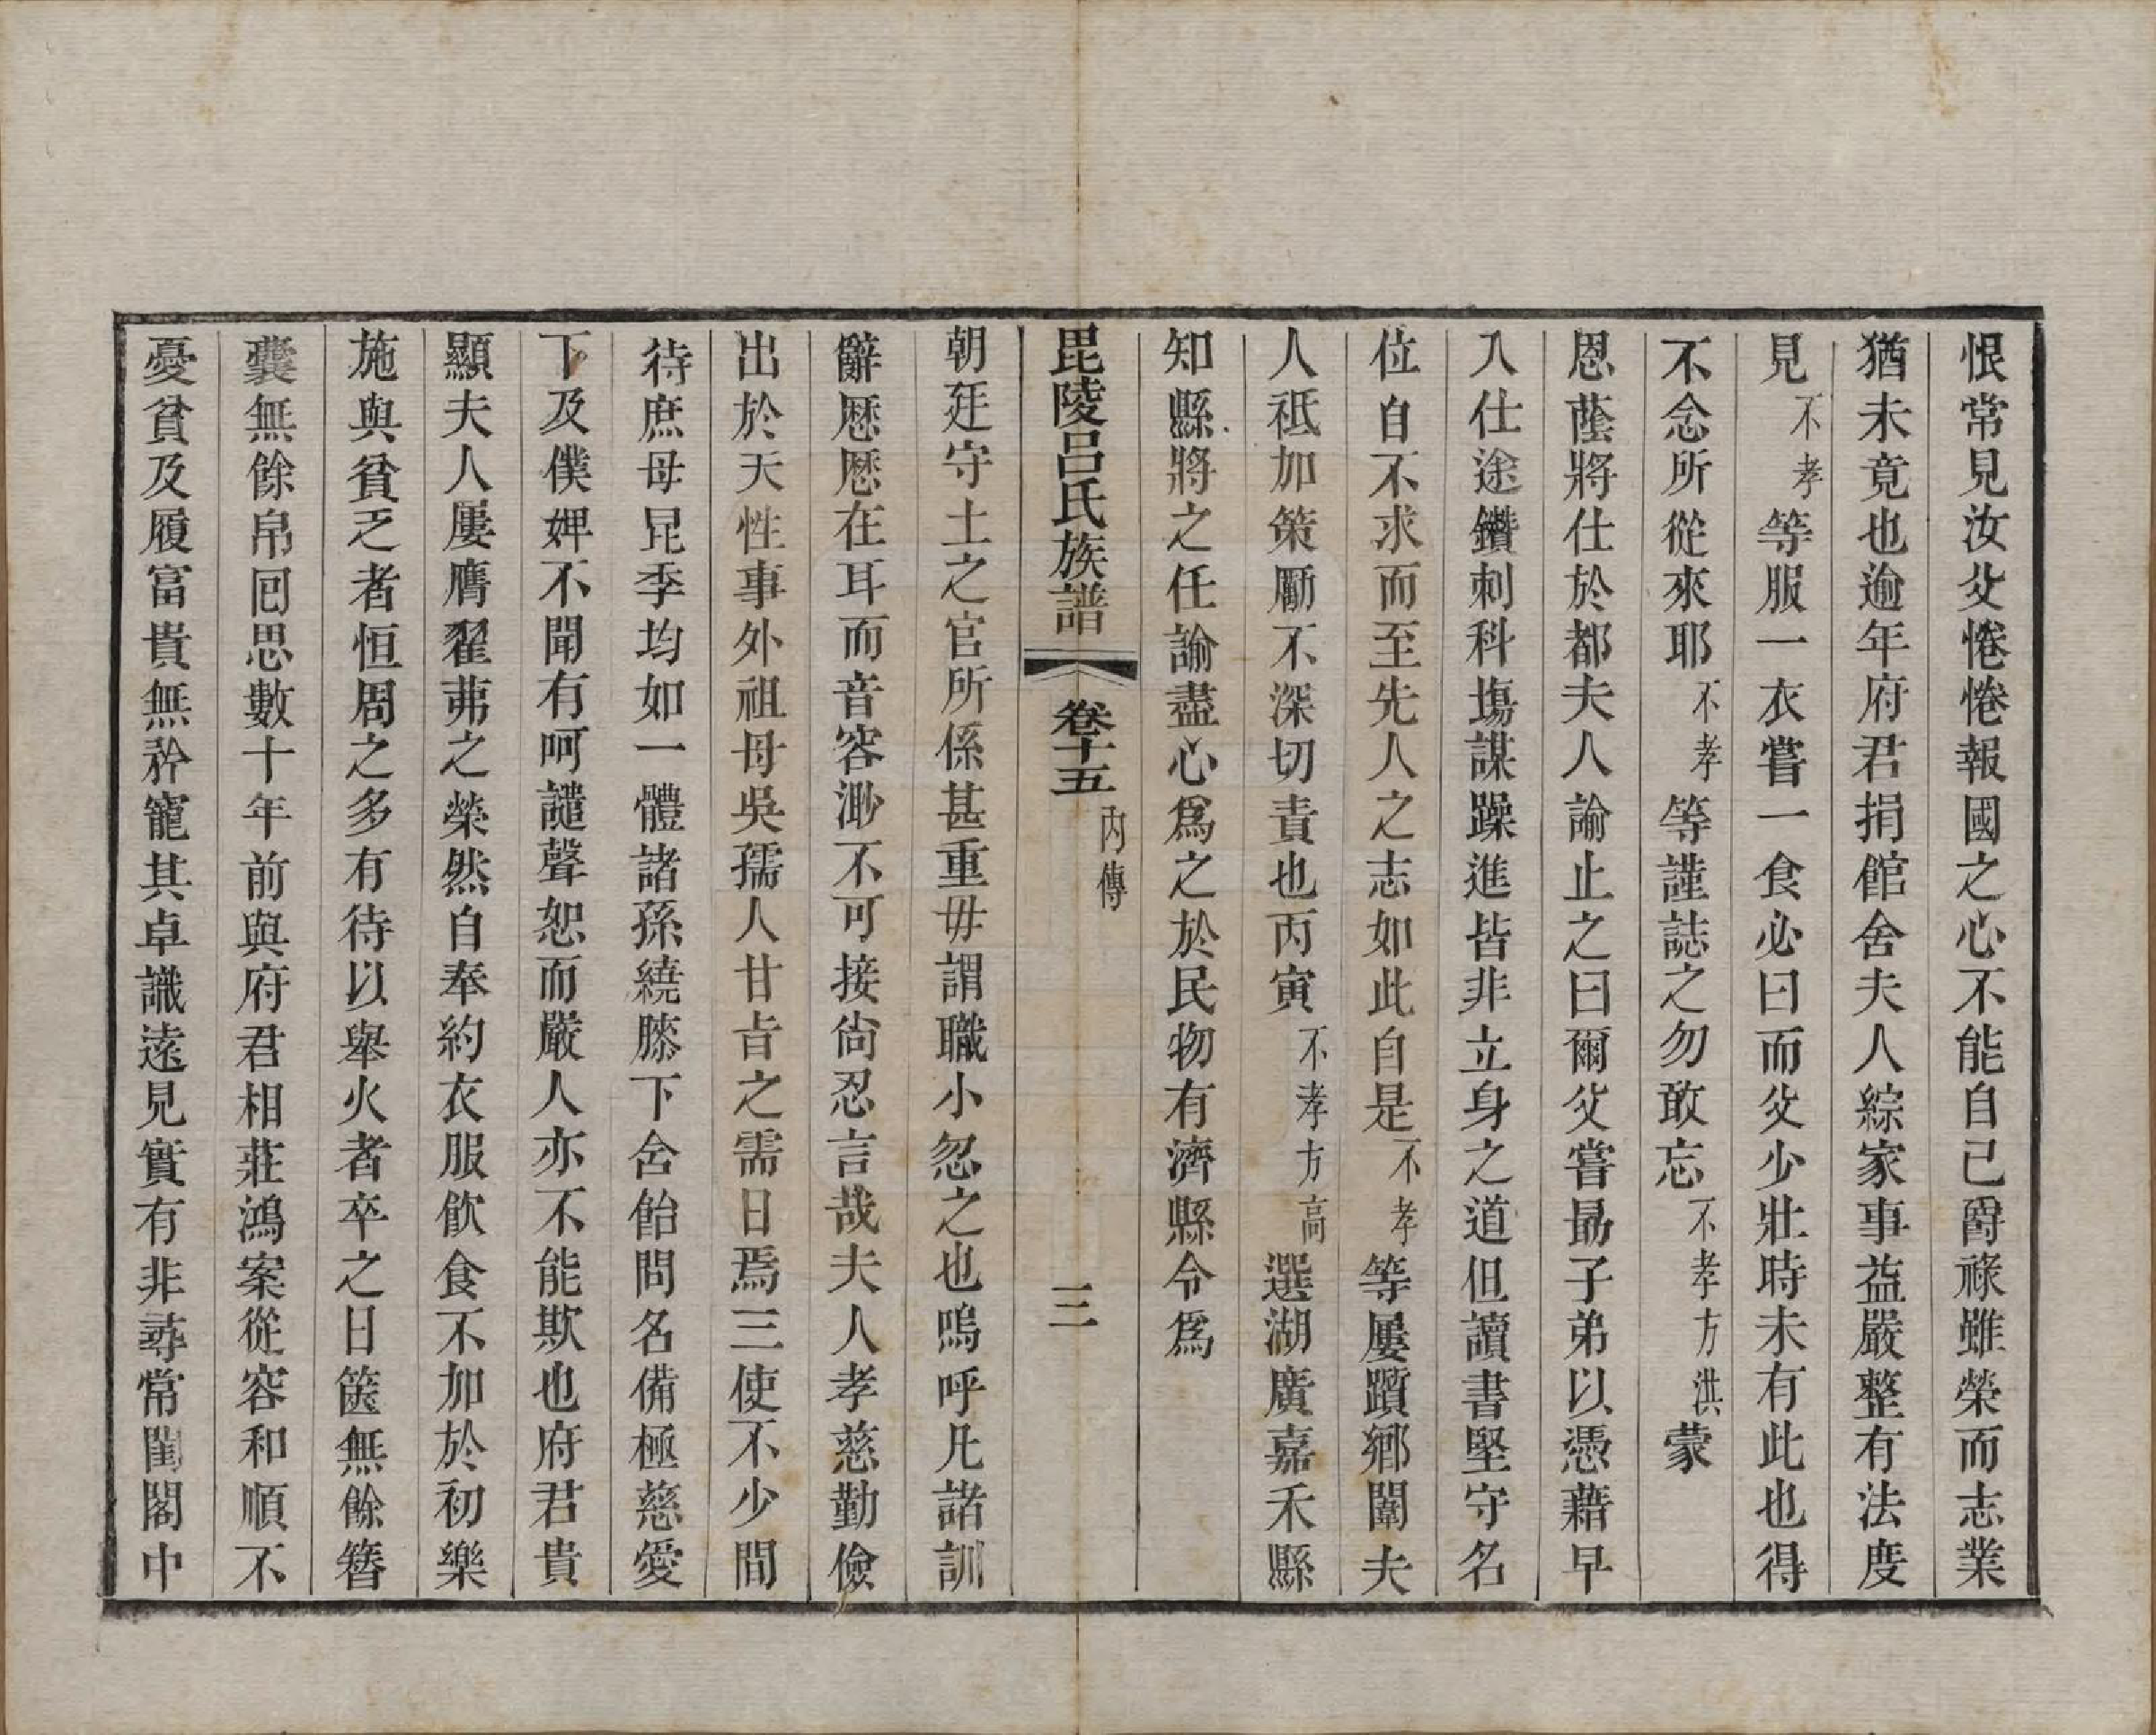 恨常見汝父惓惓報國之心不能自己爵祿雖榮而志業
猶未竟也逾年府君捐館舍夫人綜家事益嚴整有法度
見不孝等服一衣嘗一食必曰而父少壯時未有此也得
不念所從來耶不孝等謹誌之勿敢忘不孝方洪蒙
恩蔭將仕於都夫人諭止之曰爾父嘗勗子弟以憑藉早
入仕途鑽刺科塲謀躁進皆非立身之道但讀書堅守名
位自不求而至先人之志如此自是不孝等屢躓鄉闈夫
人祗加策勵不深切責也丙寅不孝方高選湖廣嘉禾縣
知縣將之任諭盡心爲之於民物有濟縣令爲
毘陵呂氏族譜 卷十五 內傳 三
朝廷守土之官所係甚重毋謂職小忽之也嗚呼凡諸訓
辭歷歷在耳而音容渺不可接尙忍言哉夫人孝慈勤儉
出於天性事外祖母吳孺人甘旨之需日焉三使不少間
待庶母昆季均如一體諸孫繞膝下舍飴問名備極慈愛
下及僕婢不聞有呵譴聲恕而嚴人亦不能欺也府君貴
顯夫人屢膺翟茀之榮然自奉約衣服飮食不加於初樂
施與貧乏者恒周之多有待以舉火者卒之日篋無餘簪
囊無餘帛囘思數十年前與府君相莊鴻案從容和順不
憂貧及履富貴無矜寵其卓識遠見實有非尋常閨閣中